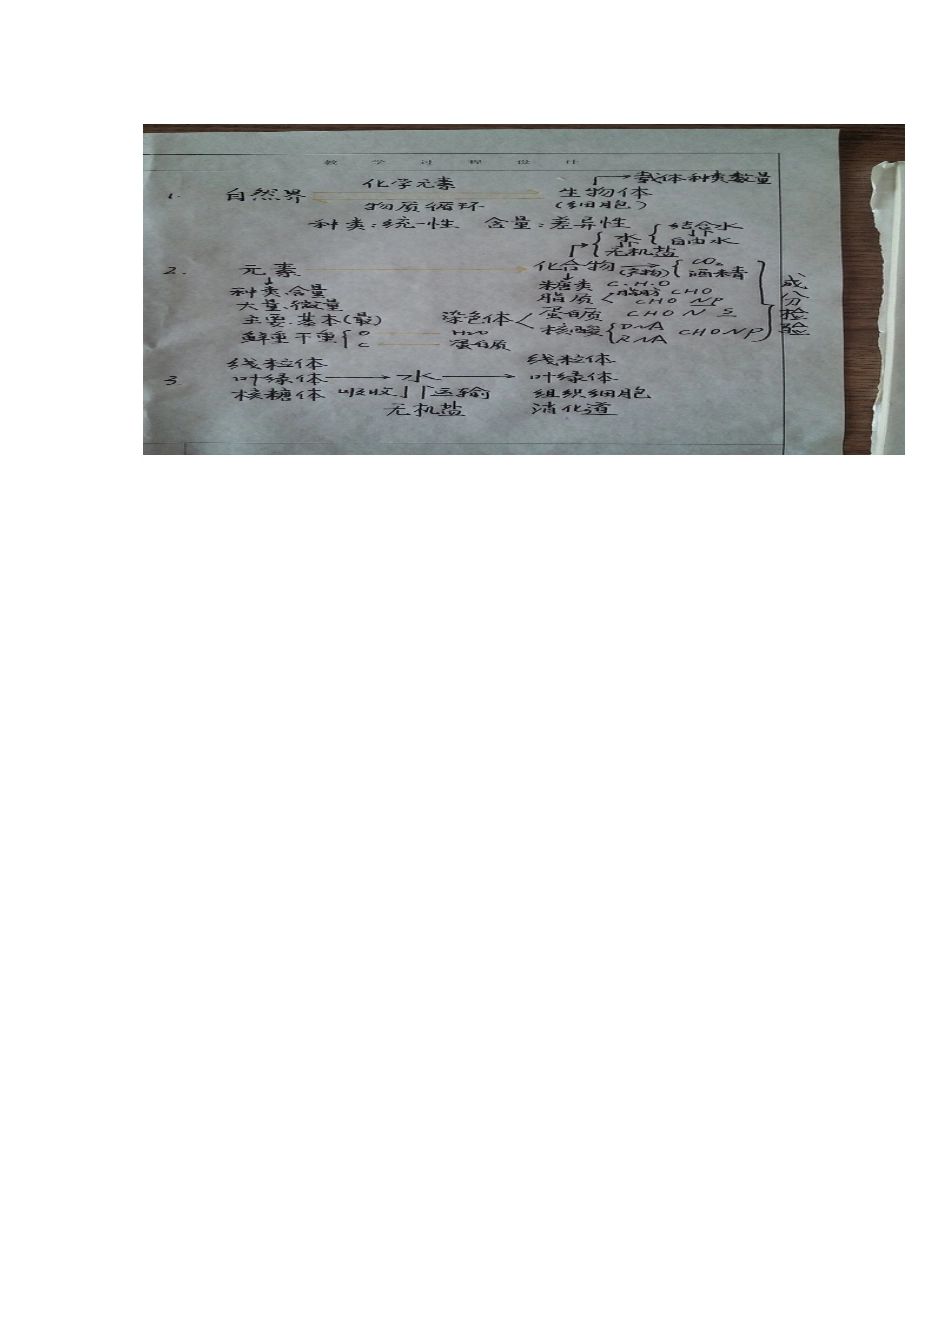 教学过程设计
载体种类数量
1. 自然界 化学元素 生物体
物质循环 (细胞)
种类:统一性 含量:差异性 结合水
水 自由水
无机盐
2. 元素 化合物 CO₂ 酒精
种类.含量 糖类 C.H.O
大量.微量 脂质 脂肪 CHO
CHO NP
主要.基本(最) 染色体 蛋白质 CHON S
鲜重干重 O H₂O 核酸 DNA CHONP
C 蛋白质 RNA
成分检验
线粒体 线粒体
3. 叶绿体 水 叶绿体
核糖体 吸收 运输 组织细胞
无机盐 消化道